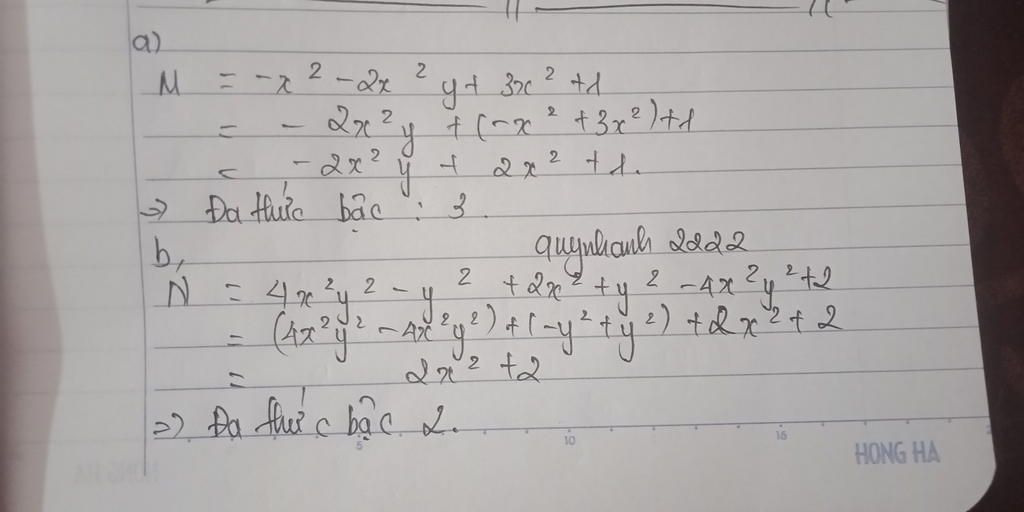 a)
M = -x² - 2x² y + 3x² + 1
= - 2x²y + (-x² + 3x²) + 1
= - 2x² y + 2x² + 1.
=> Đa thức bậc : 3.
b, quynhanh 2222
N = 4x²y² - y² + 2x² + y² - 4x²y² + 2
= (4x²y² - 4x²y²) + (-y² + y²) + 2x² + 2
= 2x² + 2
=> Đa thức bậc 2.
5 10 15
HONG HA